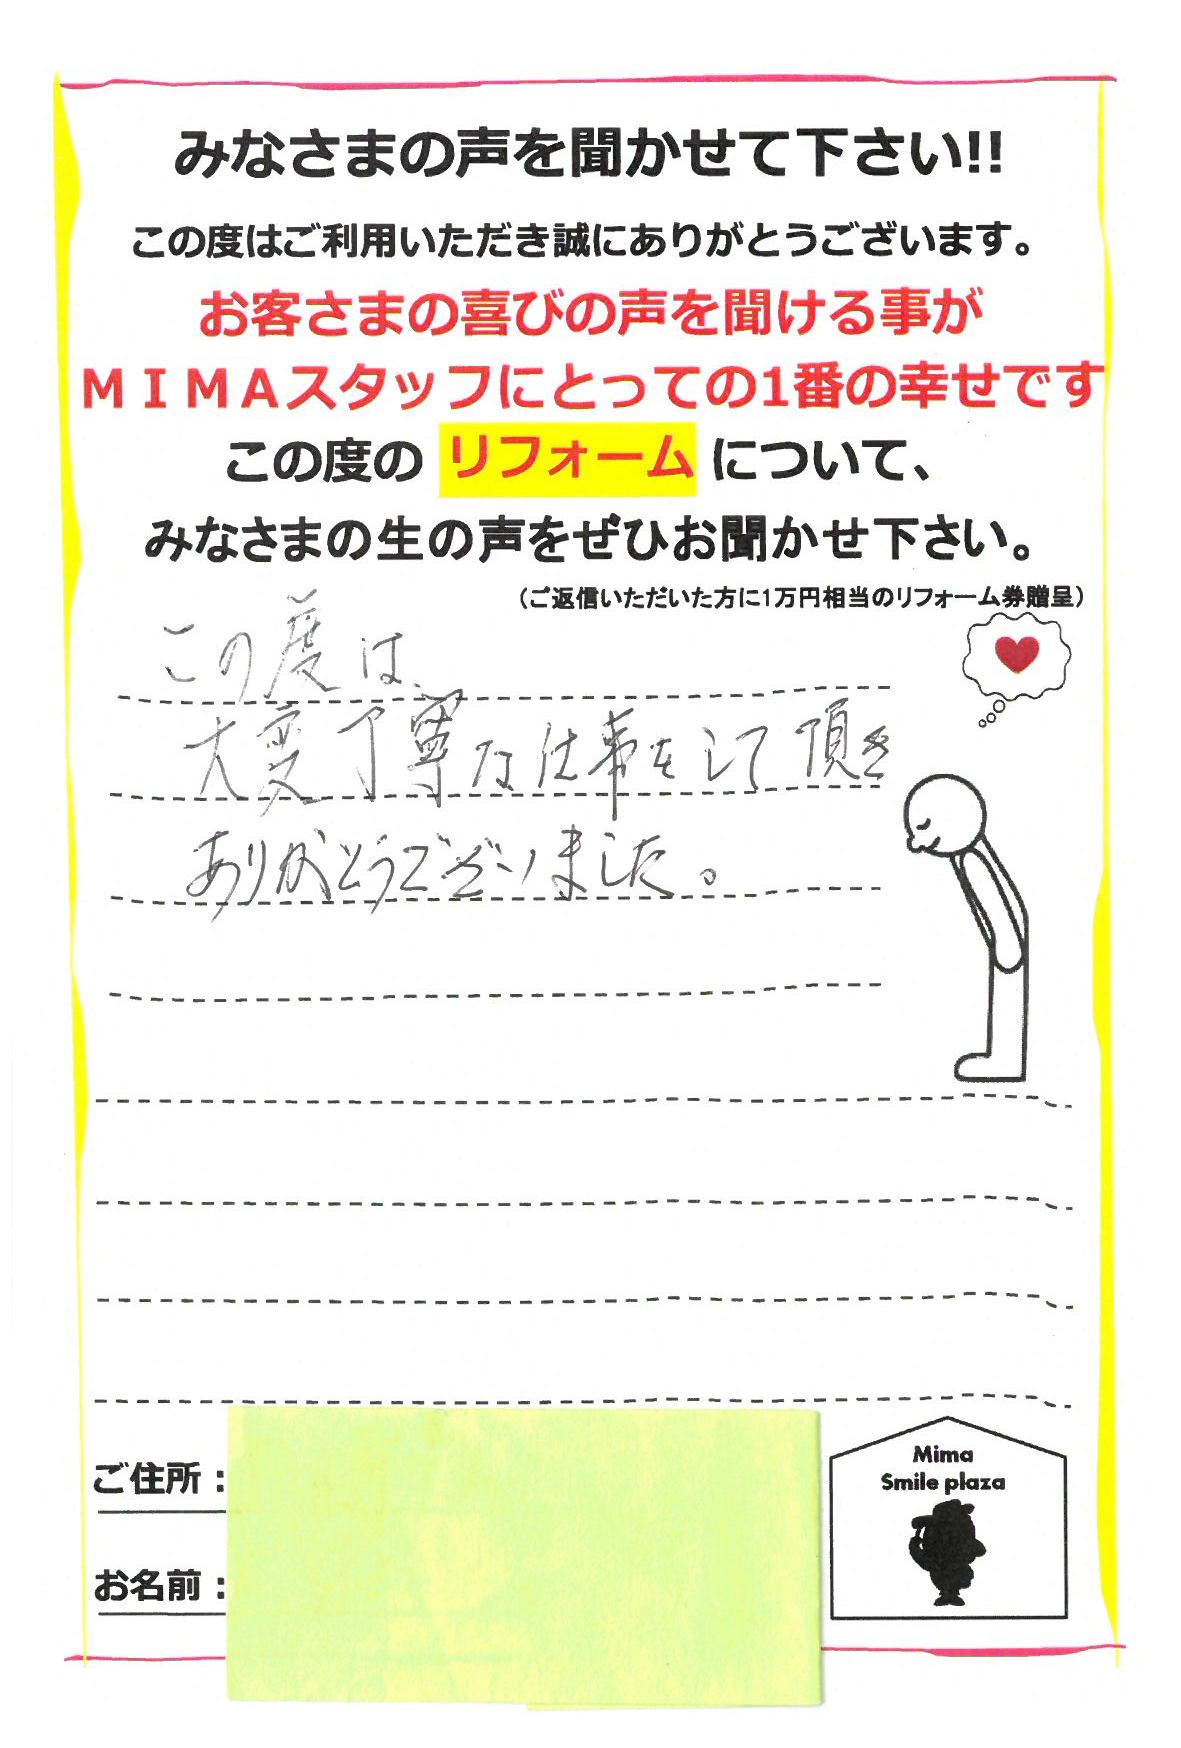 みなさまの声を聞かせて下さい!!
この度はご利用いただき誠にありがとうございます。
お客さまの喜びの声を聞ける事が
ＭＩＭＡスタッフにとっての1番の幸せです
この度の リフォーム について、
みなさまの生の声をぜひお聞かせ下さい。
（ご返信いただいた方に1万円相当のリフォーム券贈呈）
この度は、
大変丁寧な仕事をして頂き
ありがとうございました。
ご住所：
お名前：
Mima
Smile plaza